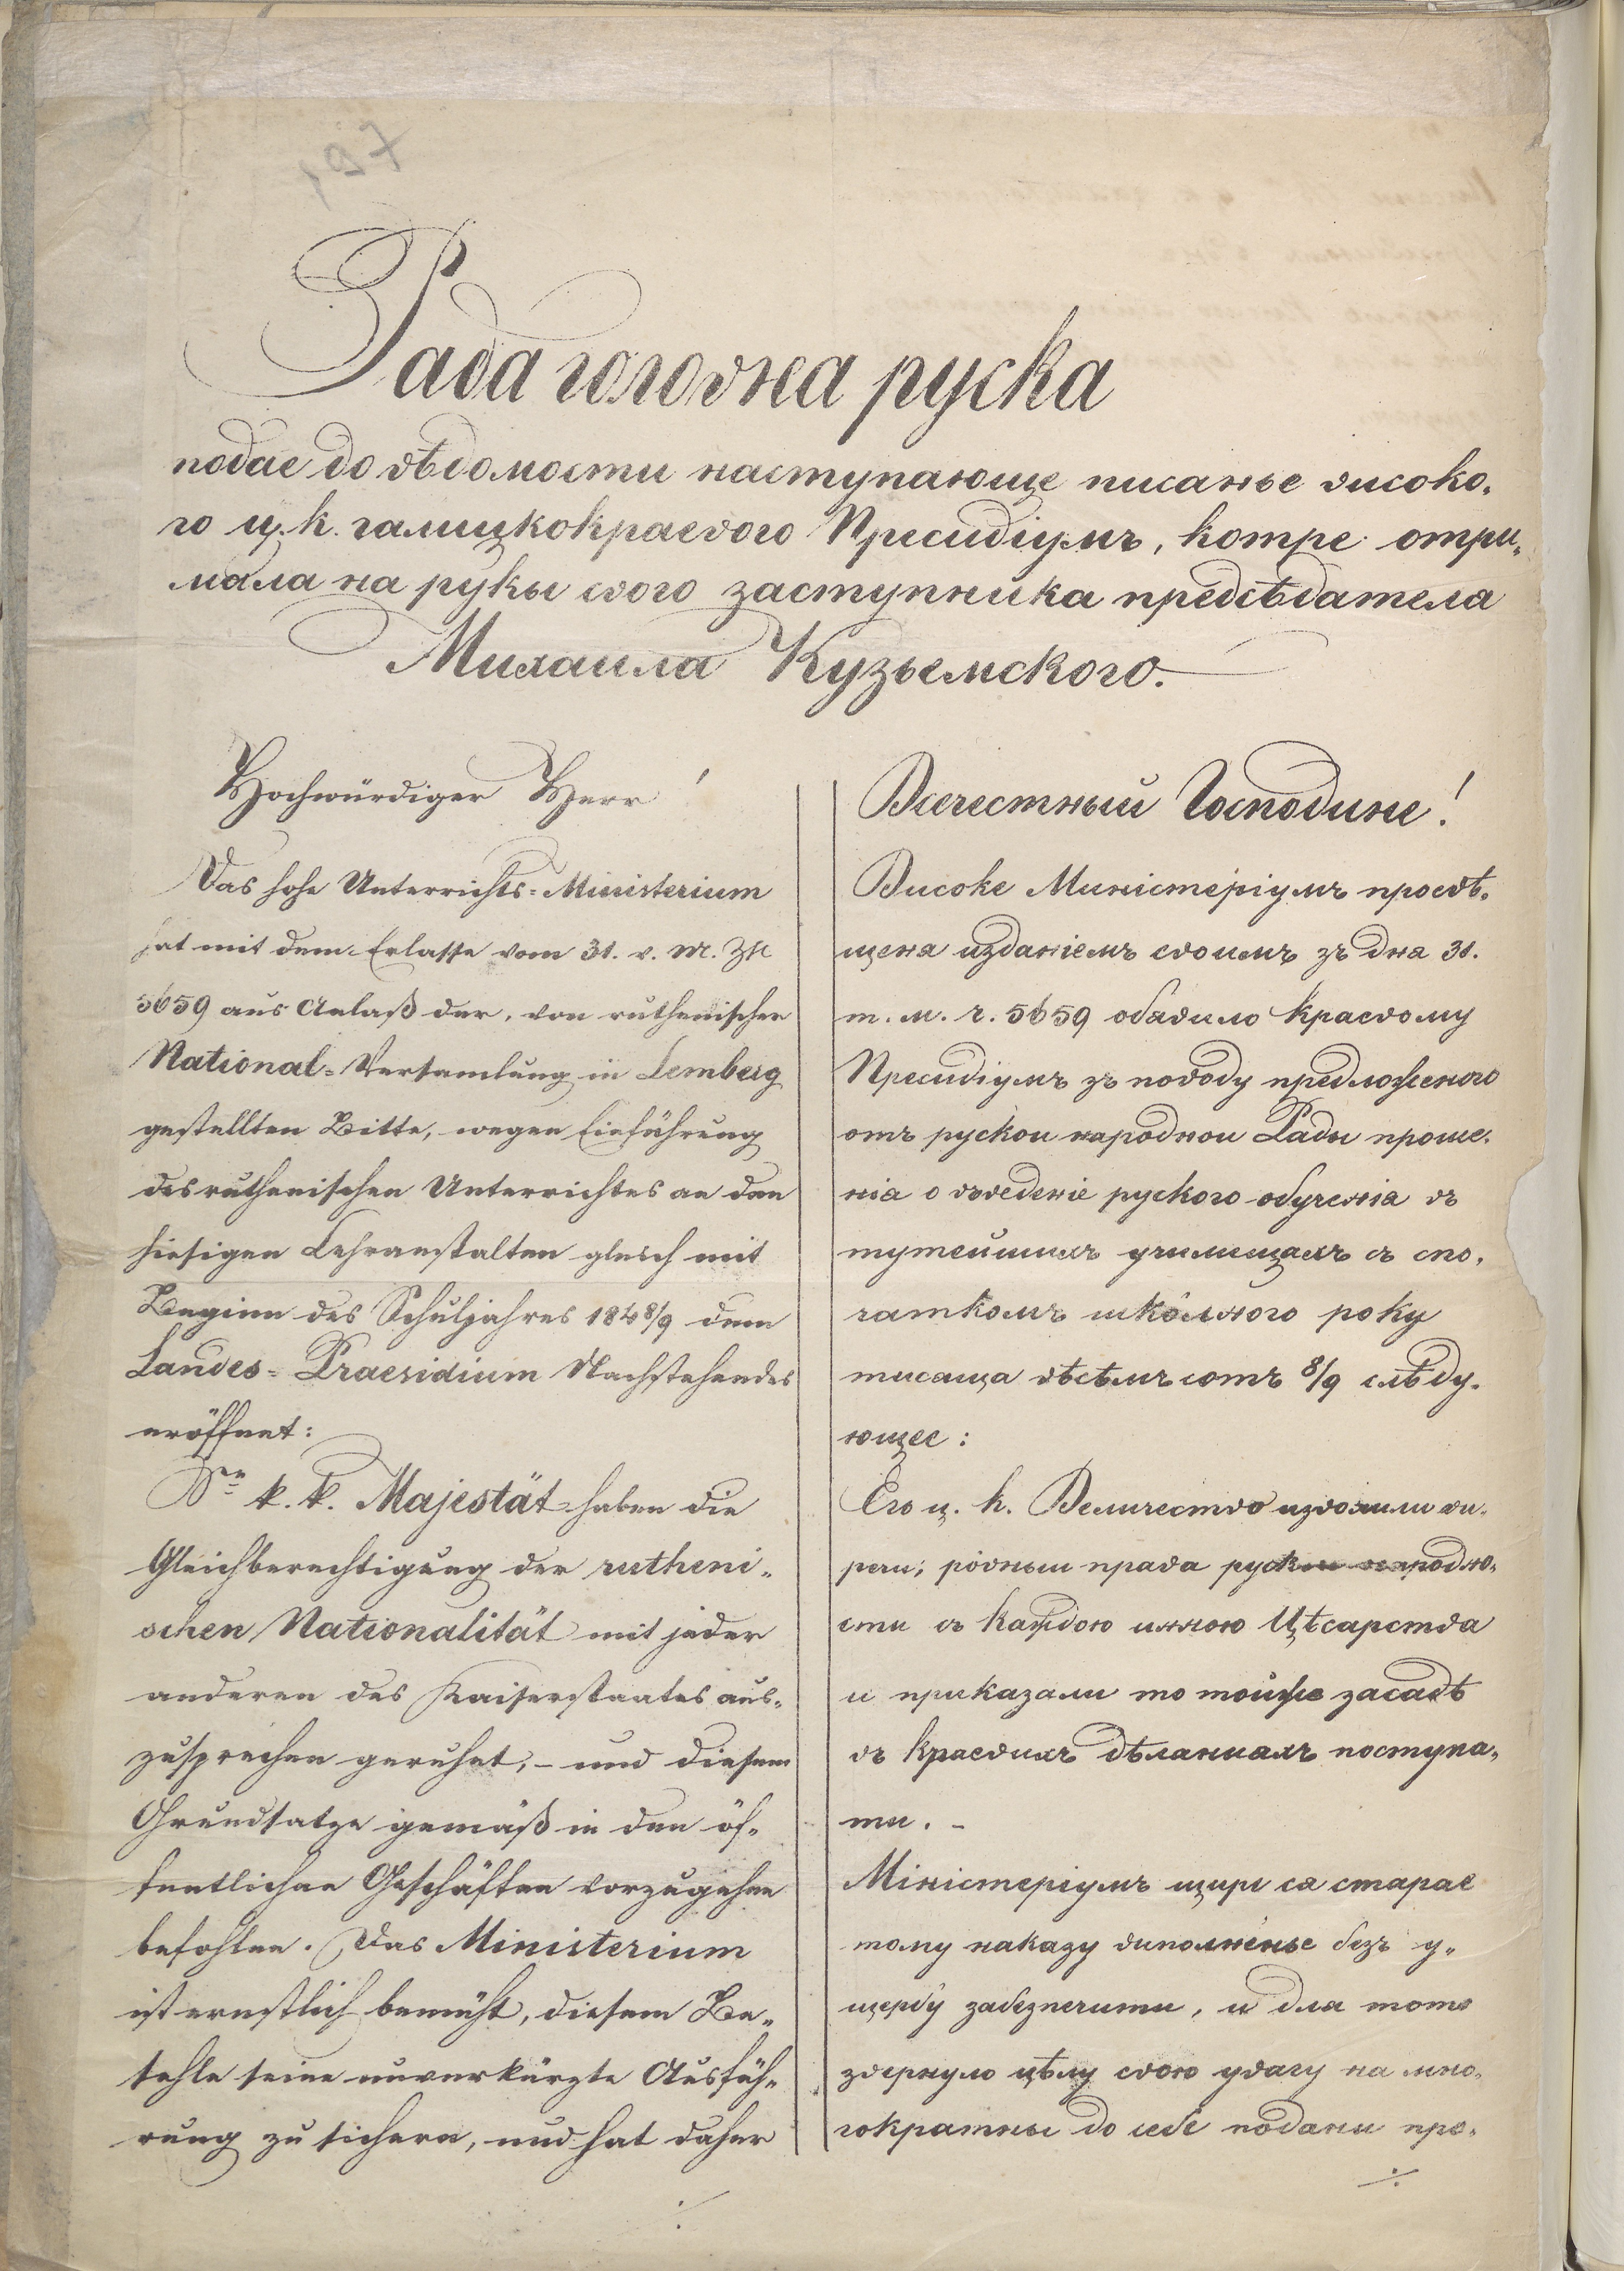 Рада головна руска
подае до вѣдомости наступающе писанье високо,
го ц. к. галицкокраевого Пресидіумъ, котре отри,
мала на рукы свого заступника предсѣдателя
Михаила Кузьемского.
Hochwürdiger Herr!
Das hohe Unterrichts=Ministerium
hat mit dem Erlasse vom 31. v. M. Zhl
5659 aus Anlaß der, von ruthenischer
National=Versamlung in Lemberg
gestellten Bitte, wegen Einführung
des ruthenischen Unterrichtes an den
hiesigen Lehranstalten gleich mit
Beginn des Schuljahres 1848/9 dem
Landes=Praesidium Nachstehendes
eröffnet:
Se k. k. Majestät haben die
Gleichberechtigung der rutheni„
schen Nationalität mit jeder
anderen des Kaiserstaates aus„
zusprechen geruhet,– und diesem
Grundsatze gemäß in den öf„
fentlichen Geschäften vorzugehen
befohlen. Das Ministerium
ist ernstlich bemüht, diesem Be„
fehle seine unverkürzte Ausfüh„
rung zu sichern, und hat daher
Всечестный Господине!
Високе Міністеріумъ просвѣ,
щеня изданіемъ своимъ зъ дня 31.
т. м. ч. 5659 обавило Краевому
Пресидіумъ зъ поводу предложеного
отъ рускои народнои Рады проше,
нія о въведеніе руского обученія въ
тутейшихъ училищахъ съ спо,
чаткомъ школьного року
тисяща вѣсѣмъ сотъ 8/9 слѣду,
ющее:
Его ц. к. Величество изволили ви,
речи; ровныи права руск народно,
сти съ каждою инною Цѣсарства
и приказали по тойже засадѣ
въ краевихъ дѣланиахъ поступа„
ти. –
Міністеріумъ щире ся старае
тому наказу виполненье безъ у„
щербу забезпечити, и для того
звернуло цѣлу свою увагу на мно,
гократны до себе подани про„